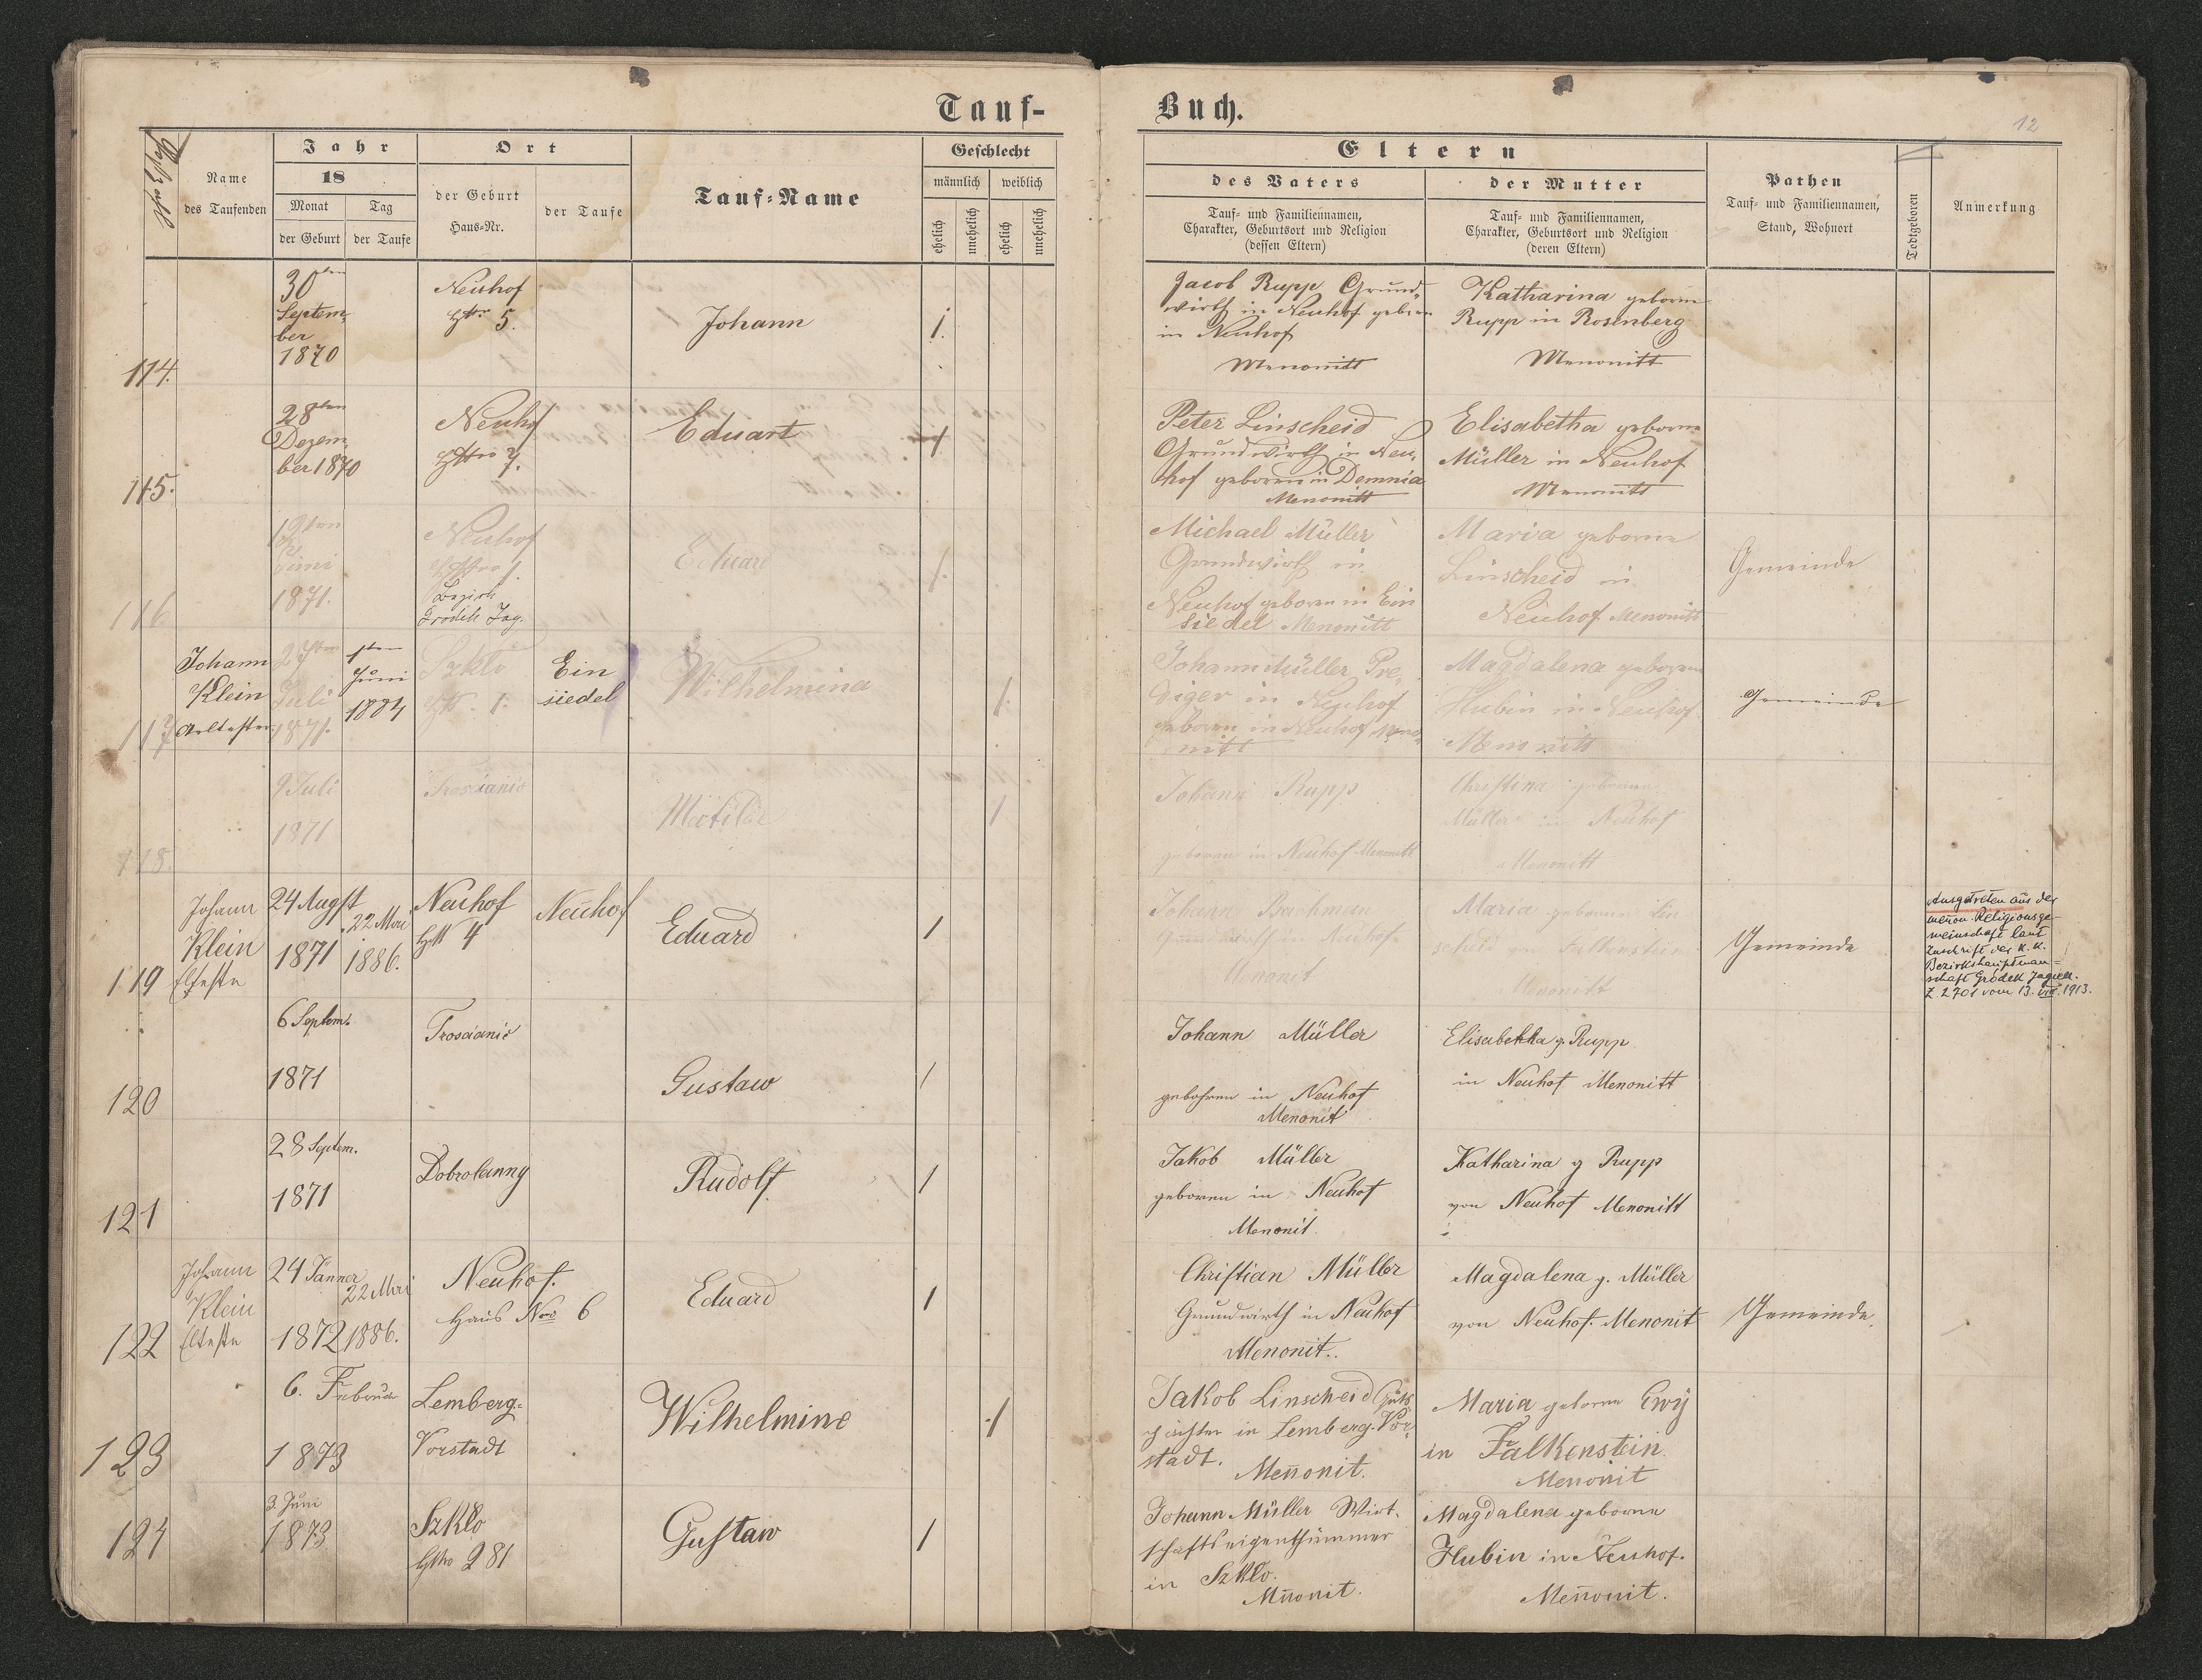 Tauf-
Buch.
12
Postzahl
Name
des Taufenden
Jahr
18
Monat
Tag
der Geburt
der Taufe
Ort
der Geburt
Haus-Nr.
der Taufe
Tauf-Name
Geschlecht
männlich
weiblich
ehelich
unehelich
ehelich
unehelich
Eltern
des Vaters
Tauf- und Familiennamen,
Charakter, Geburtsort und Religion
(dessen Eltern)
der Mutter
Tauf- und Familiennamen,
Charakter, Geburtsort und Religion
(deren Eltern)
Pathen
Tauf- und Familiennamen,
Stand, Wohnort
Todtgeboren
Anmerkung
114.
30ten
Septem-
ber
1870
Neuhof
5.
Johann
1.
Jacob Rupp Grund-
wirth in Neuhof geboren
in Neuhof
Menonitt
Katharina geborne
Rupp in Rosenberg
Menonitt
115.
28ten
Dezem-
ber 1870
Neuhof
7.
Eduart
1
Peter Linscheid
Grundwirth in Neu-
hof geboren in Demnia
Menonitt
Elisabetha geborne
Müller in Neuhof
Menonitt
116
19ten
Juni
1871.
Neuhof
1.
Bezirk
Grodek Jag.
Eduard
1.
Michael Müller
Grundwirth in
Neuhof geboren in Ein
siedel Menonitt
Maria geborne
Linscheid in
Neuhof Menonitt
Gemeinde
117
Johann
Klein
Aeltester
27ten
Juli
1871.
1ten
Juni
1884
Szklo
1.
Ein
siedel
Wilhelmina
1.
Johann Müller Pre-
diger in Neuhof
geboren in Neuhof Meno-
nitt
Magdalena geboren
Hubin in Neuhof
Menonitt
Gemeinde
118.
9 Juli
1871
Troscianic
Matilde
1
Johann Rupp
geboren in Neuhof Menonitt
Christina geborene
Müller in Neuhof
Menonitt
119
Johann
Klein
Elteste
24 Augst
1871
22 Mai
1886.
Neuhof
4
Neuhof
Eduard
1
Johann Bachman
Grundwirth in Neuhof
Menonit
Maria geborene Lin
scheid von Falkenstein
Menonitt
Gemeinde
Ausgetreten aus der
menon. Religionsge-
meinschaft laut
Zuschrift der K. K.
Bezirkshauptman=
schaft Gródek Jagiell.
Z. 2701 vom 13. VIII. 1913.
120
6 Septemb.
1871
Troscianic
Gustaw
1
Johann Müller
gebohren in Neuhof
Menonit
Elisabetha g. Rupp
in Neuhof Menonitt
121
28 Septem.
1871
Dobrolanny
Rudolf
1
Jakob Müller
geboren in Neuhof
Menonit
Katharina g Rupp
von Neuhof Menonitt
122
Johann
Klein
Elteste
24 Jänner
1872
22 Mai
1886.
Neuhof.
Haus Nro 6
Eduard
1
Christian Müller
Grundwirth in Neuhof
Menonit.
Magdalena g. Müller
von Neuhof. Menonit
Gemeinde.
123
6. Februar
1873
Lemberg-
Vorstadt
Wilhelmine
1
Jakob Linscheid Guts
pächter in Lemberg. Vor-
stadt. Menonit.
Maria geborne Ewy
in Falkenstein
Menonit
124
3. Juni
1873
Szklo
281
Gustaw
1
Johann Müller Wirt-
schaftseigenthümmer
in Szklo.
Menonit.
Magdalena geborne
Hubin in Neuhof.
Menonit.